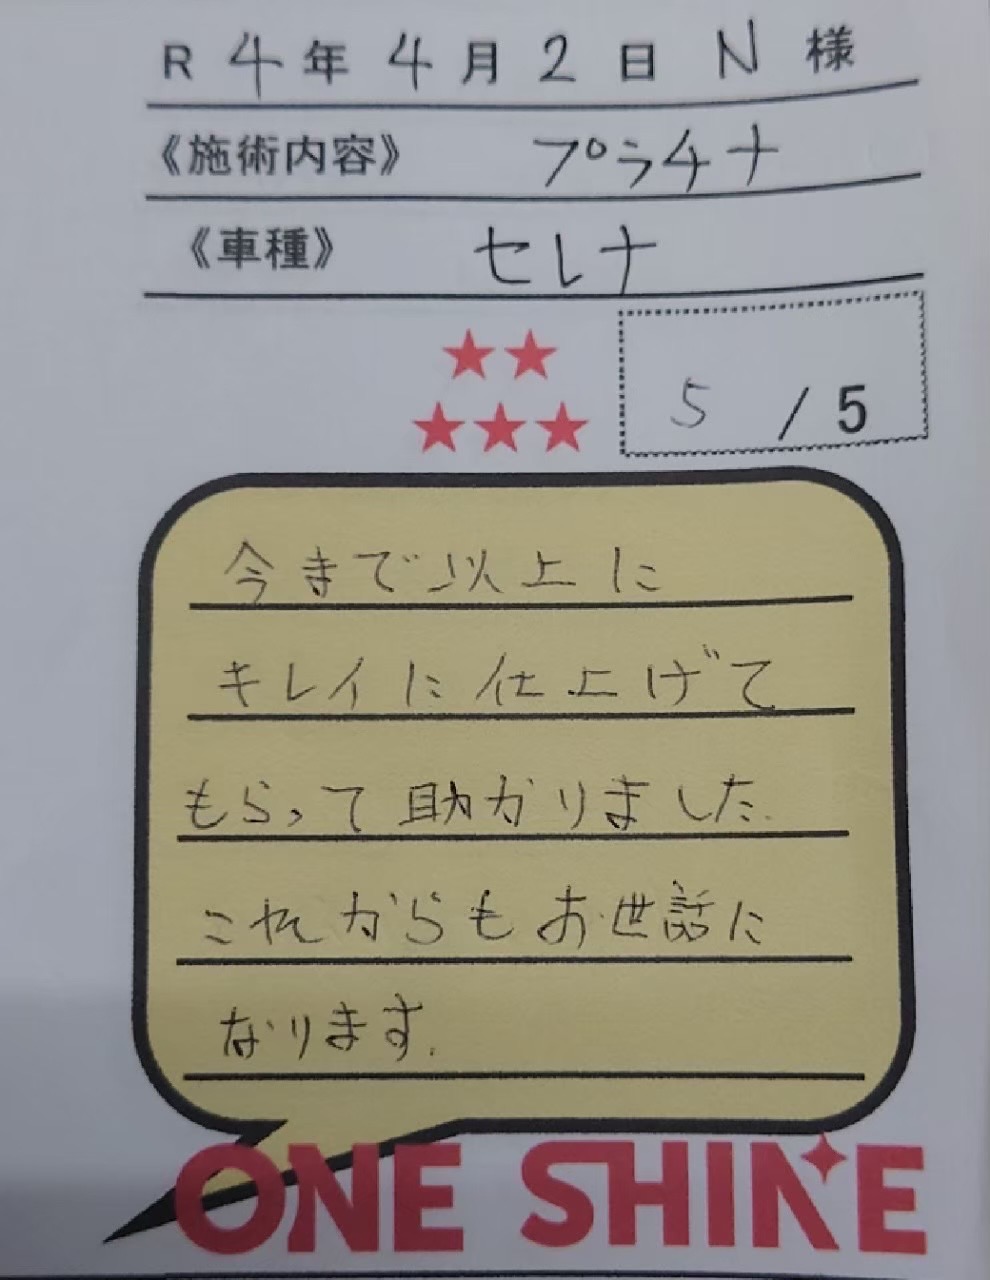 R 4年 4月 2日 N 様
《施術内容》 プラチナ
《車種》 セレナ
5 / 5
今まで以上に
キレイに仕上げて
もらって助かりました.
これからもお世話に
なります.
ONE SHINE